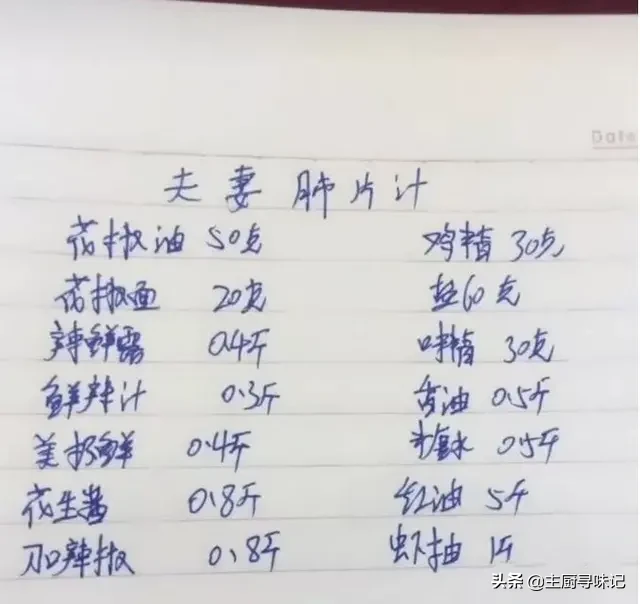 Date
夫妻肺片汁
花椒油 50克 鸡精 30克
花椒面 20克 盐60克
辣鲜露 0.4斤 味精 30克
鲜辣汁 0.3斤 香油 0.5斤
美极鲜 0.4斤 糖水 0.5斤
花生酱 0.8斤 红油 5斤
刀口辣椒 0.8斤 虾抽 1斤
头条 @主厨寻味记